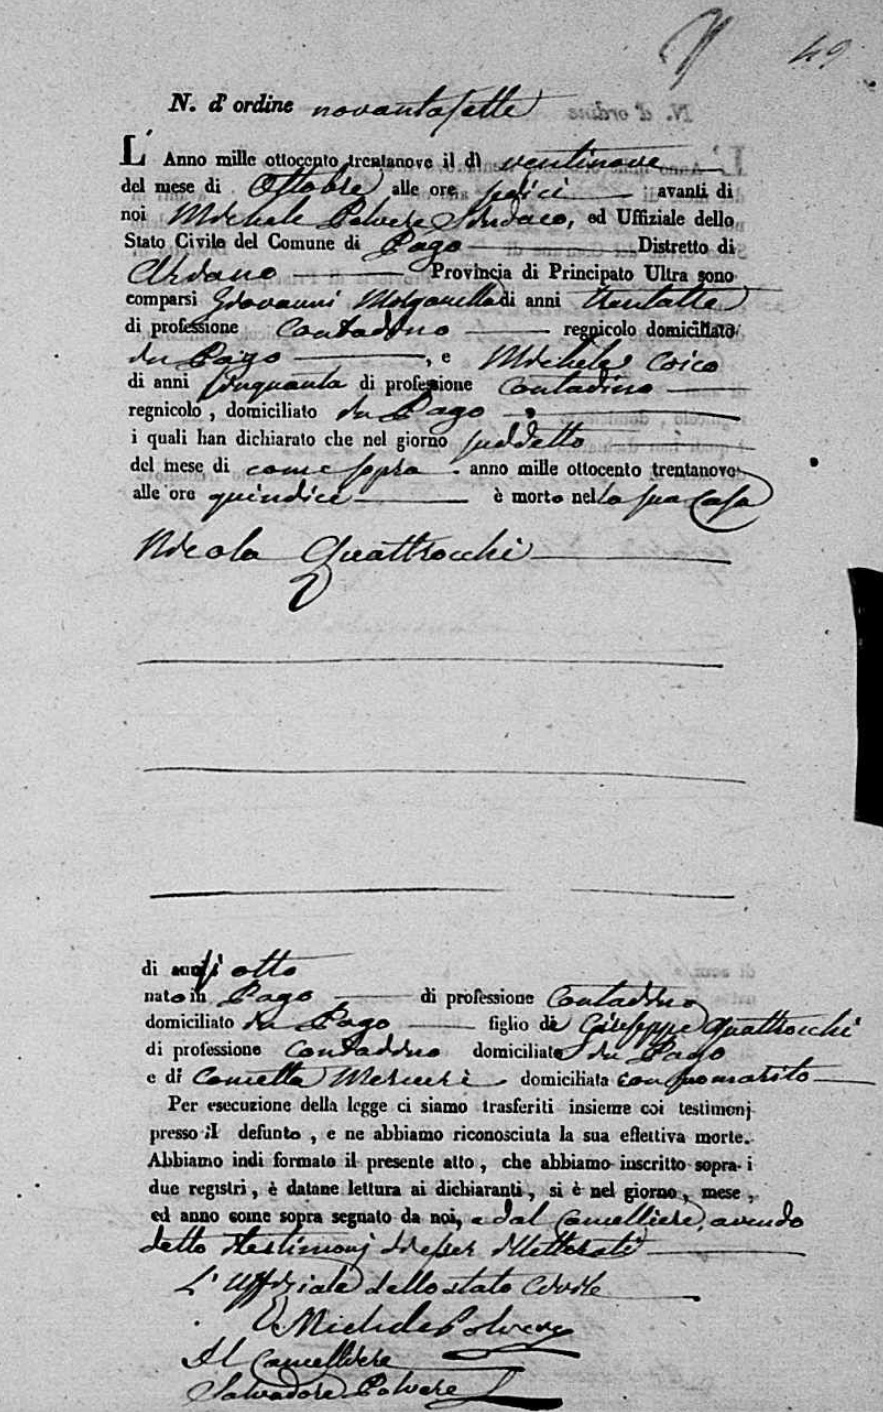 49
N. d'ordine novantasette
L'Anno mille ottocento trentanove il dì ventinove
del mese di Ottobre alle ore sedici avanti di
noi Michele Polvere Sindaco, ed Uffiziale dello
Stato Civile del Comune di Pago Distretto di
Ariano Provincia di Principato Ultra sono
comparsi Giovanni di anni
di professione Contadino regnicolo domiciliato
in Pago , e Michele Coico
di anni cinquanta di professione Contadino
regnicolo , domiciliato in Pago
i quali han dichiarato che nel giorno suddetto
del mese di come sopra anno mille ottocento trentanove
alle ore quindici è morto nella sua Casa
Nicola Quattrocchi
di anni otto
nato in Pago di professione Contadino
domiciliato in Pago figlio di Giuseppe Quattrocchi
di professione Contadino domiciliato in Pago
e di domiciliata con suo marito
Per esecuzione della legge ci siamo trasferiti insieme coi testimonj
presso il defunto , e ne abbiamo riconosciuta la sua effettiva morte.
Abbiamo indi formato il presente atto , che abbiamo inscritto sopra i
due registri , è datane lettura ai dichiaranti , si è nel giorno , mese ,
ed anno come sopra segnato da noi, e dal Cancelliere, avendo
detto i testimonj di esser illetterati
L'Uffiziale dello stato Civile
Michele Polvere
Il Cancelliere
Salvadore Polvere